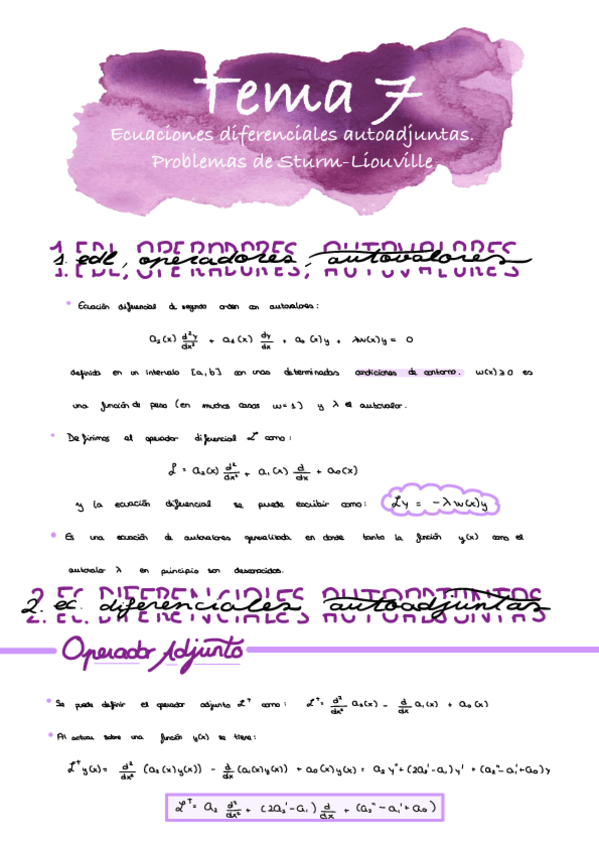 Tema 7
Ecuaciones diferenciales autoadjuntas.
Problemas de Sturm-Liouville
1. EDL, OPERADORES, AUTOVALORES
1. edl, operadores, autovalores
• Ecuación diferencial de segundo orden con autovalores:
a₂(x) d²y/dx² + a₁(x) dy/dx + a₀(x)y + λw(x)y = 0
definida en un intervalo [a,b] con unas determinadas condiciones de contorno. w(x)≥0 es
una función de peso (en muchos casos w=1) y λ el autovalor.
• Definimos el operador diferencial ℒ como:
ℒ = a₂(x) d²/dx² + a₁(x) d/dx + a₀(x)
y la ecuación diferencial se puede escribir como: ℒy = -λw(x)y
• Es una ecuación de autovalores generalizada en donde tanto la función y(x) como el
autovalor λ en principio son desconocidos.
2. EC. DIFERENCIALES AUTOADJUNTAS
2. ec. diferenciales autoadjuntas
Operador Adjunto
• Se puede definir el operador adjunto ℒ⁺ como: ℒ⁺ = d²/dx² a₂(x) - d/dx a₁(x) + a₀(x)
• Al actuar sobre una función y(x) se tiene:
ℒ⁺y(x) = d²/dx² (a₂(x)y(x)) - d/dx (a₁(x)y(x)) + a₀(x)y(x) = a₂y'' + (2a₂'-a₁)y' + (a₂''-a₁'+a₀)y
ℒ⁺ = a₂ d²/dx² + (2a₂'-a₁) d/dx + (a₂''-a₁'+a₀)